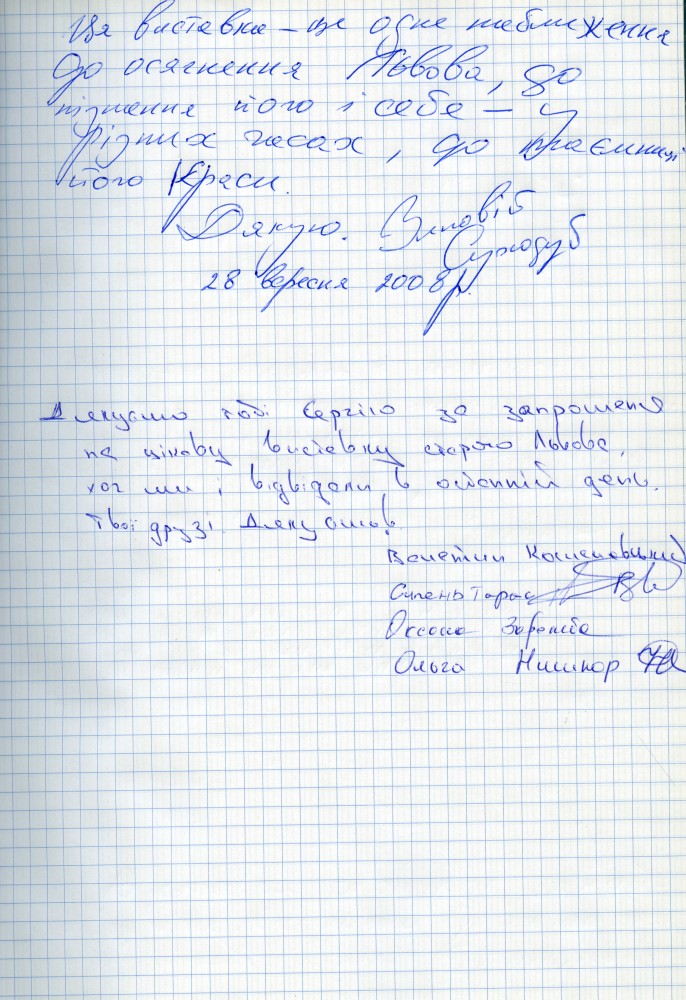 Ця виставка – ще одне наближення
до осягнення Львова, до
пізнання його і себе – у
різних часах, до таємниці
його Краси.
Дякую. Зиновій
Суходуб
28 вересня 2008 р.
Дякуємо тобі Сергію за запрошення
на цікаву виставку старого Львова,
хоч ми і відвідали в останній день.
Твої друзі. Дякуємо!
Валентин
Сулень Тарас
Оксана Заремба
Ольга Нишпор